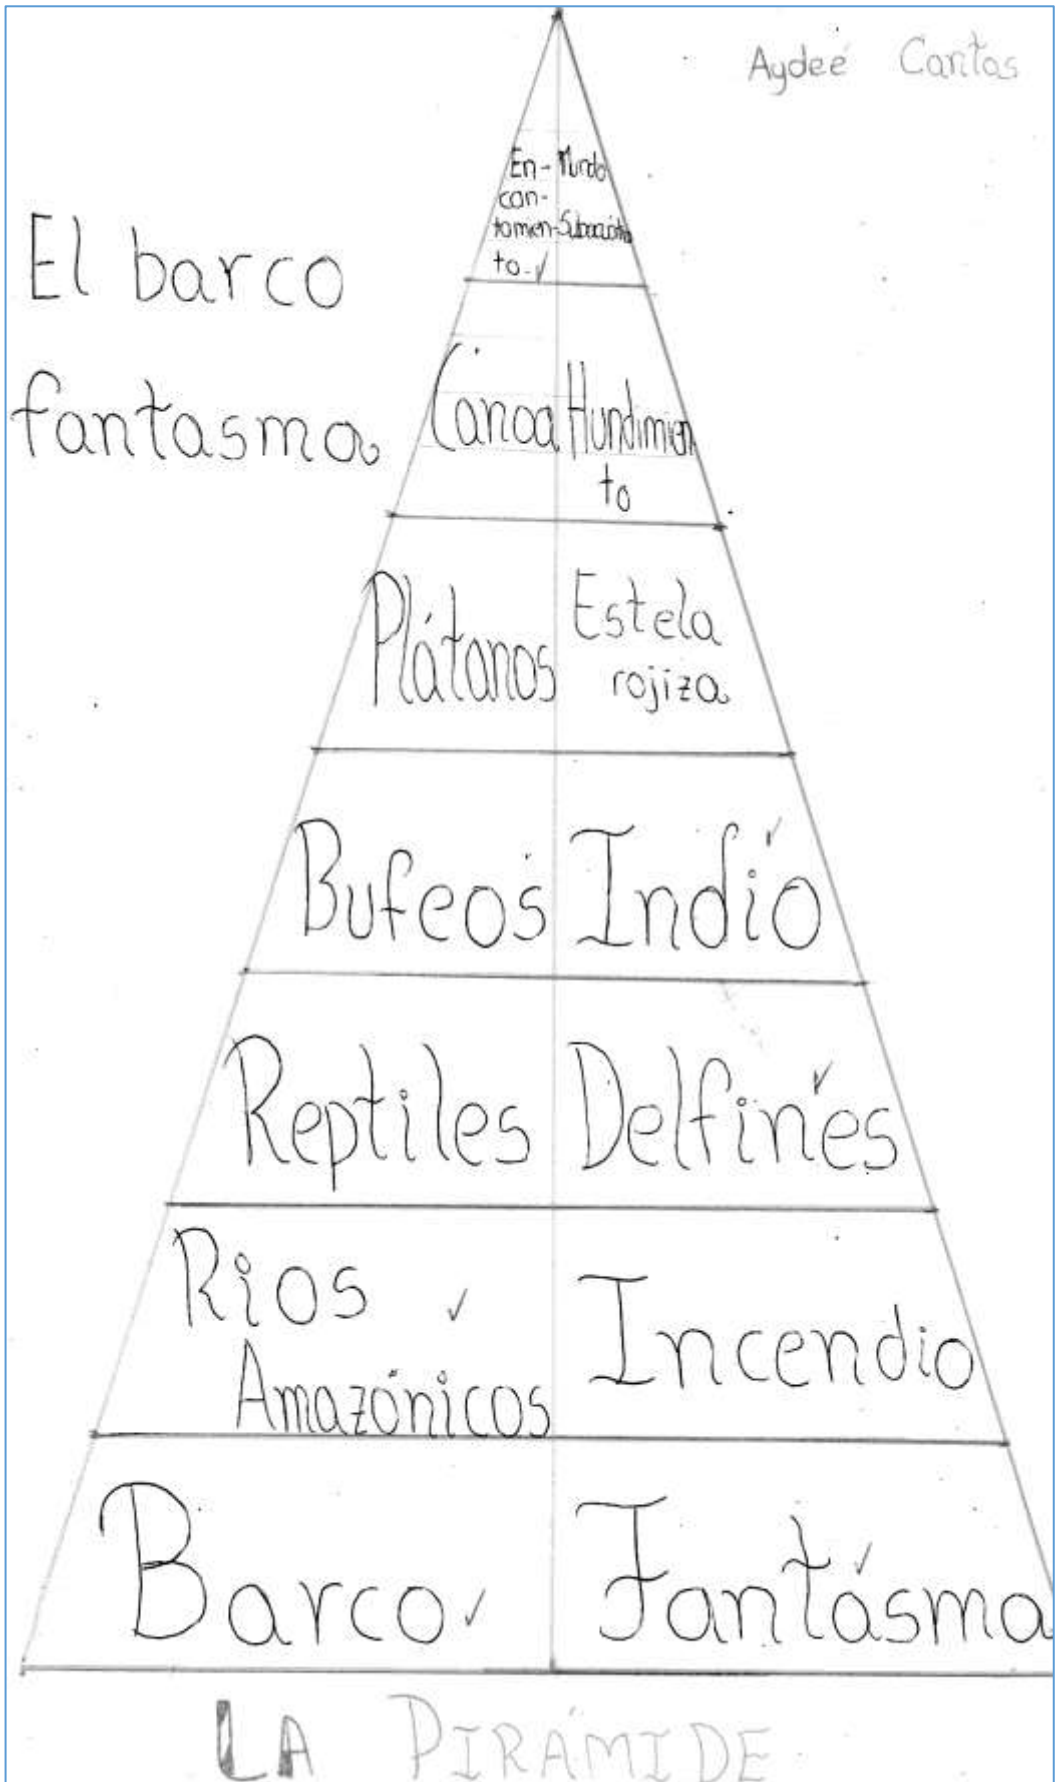 Aydeé Cantos
El barco
fantasma
En- Mundo
can-
tamien- Subacuático
to
Canoa Hundimien
to
Plátanos Estela
rojiza
Bufeos Indio
Reptiles Delfines
Rios
Amazónicos Incendio
Barco Fantasma
LA PIRÁMIDE